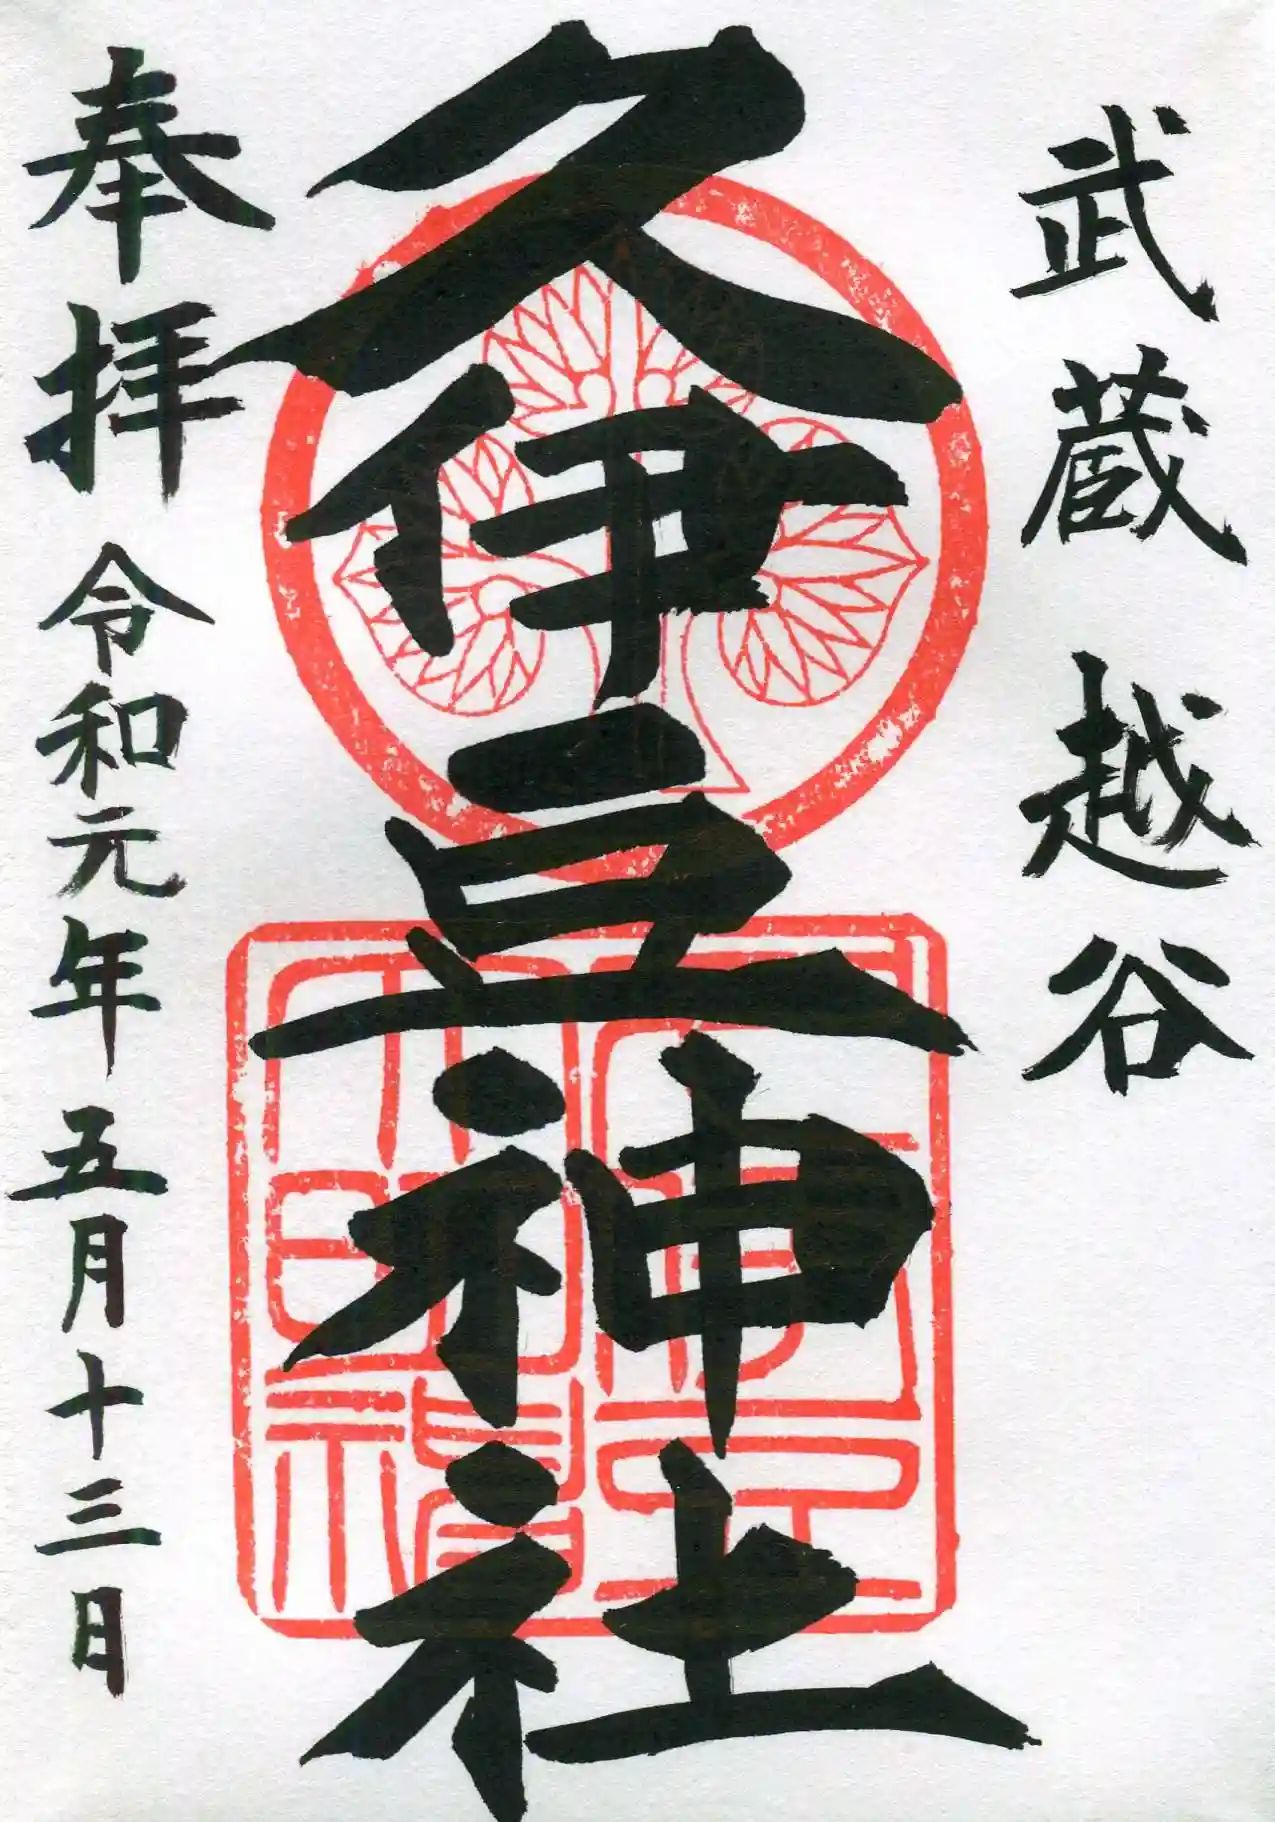 武蔵 越谷
久伊豆神社
奉拝 令和元年 五月十三日